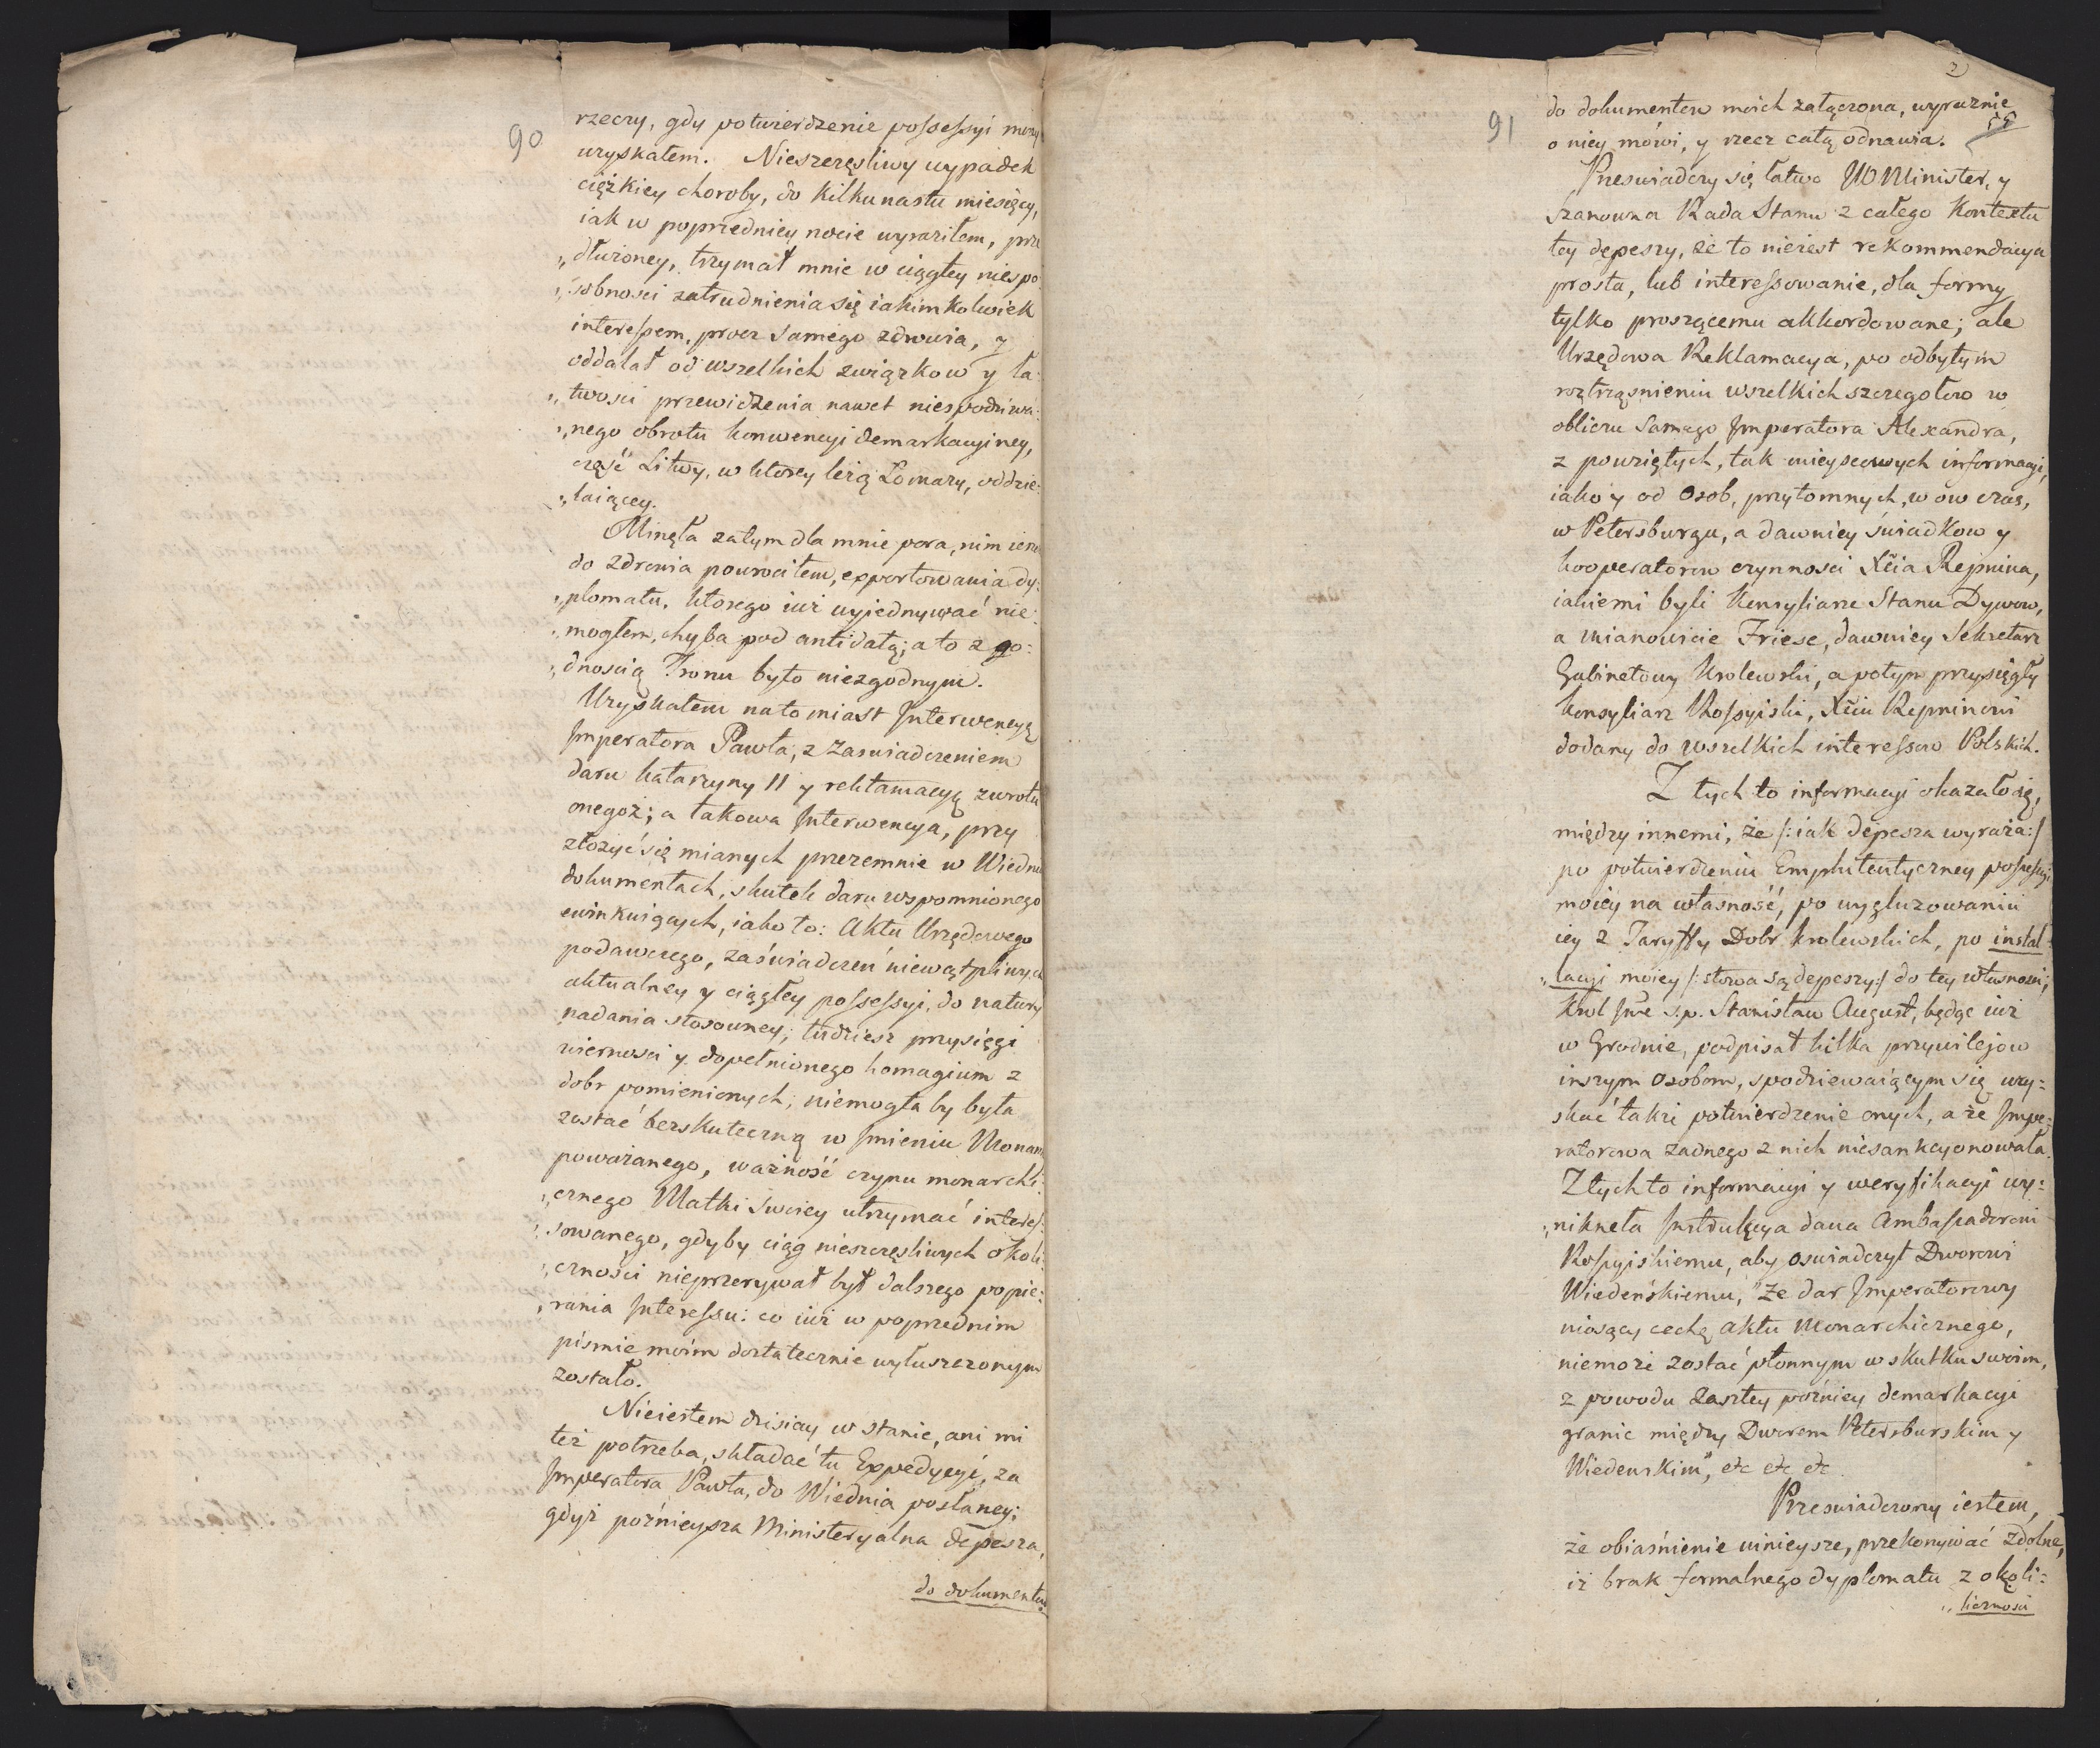 90
rzeczy, gdy potwierdzenie possessyi moiey
uzyskałem. Nieszczęśliwy wypadek
ciężkiey choroby, do kilkunastu miesięcy,
iak w poprzedniey nocie wyraziłem, prze
„dłużoney, trzymał mnie w ciągłey niespo„
„sobnosci zatrudnienia się iakimkolwiek
interessem, procz samego zdrowia, y
oddalał od wszelkich związkow y ła„
„twosci przewidzenia nawet niespodziwa„
„nego obrotu konwencyi demarkacyiney,
część Litwy, w ktorey leżą Łomazy, oddzie„
„laiącey.
Minęła zatym dla mnie pora, nim iem
do zdrowia powrocitem, exportowania dy„
„plomatu, ktorego iuż wyjednywać nie„
„mogłem, chyba pod antidatą; a to z go„
„dnoscią Tronu było niezgodnym.
Uzyskałem natomiast Interwencyę
Imperatora Pawła, z zaswiadczeniem
daru Katarzyny II y reklamacyą zwrotu
onegoż; a takowa Interwencya, przy
złożyć się mianych przezemnie w Wiedniu
dokumentach, skutek daru wspomnionego
ewinkuiących, iako to: Aktu Urzędowego
podawczego, zaświadczeń niewątpliwych
aktualney y ciągłey possessyi, do natury
nadania stosowney; tudziesz przysięgi
wiernosci y dopełnionego homagium z
dobr pomienionych; niemogła by była
zostać bezskuteczną w Imieniu Monar
poważanego, ważność czynu monarchi„
„cznego Matki swoiey utrzymać interes„
„sowanego, gdyby ciąg nieszczęsliwych okoli„
„cznosci nieprzerywał był dalszego popie„
„rania Interessu: co iuż w poprzednim
pismie moim dostatecznie wyłuszczonym
zostało.
Nieiestem dzisiay w stanie, ani mi
też potrzeba, składać tu Expedycyi, za
Imperatora Pawła, do Wiednia posłaney;
gdyż poźnieysza Ministeryalna depesza,
do dokumentow
2
91
do dokumentow moich załączona, wyraznie
o niey mówi, y rzecz całą odnawia.
Przeswiadczy się łatwo JW Minister, y
Szanowna Rada Stanu z całego Kontextu
tey depeszy, że to nieiest rekommendacya
prosta, lub interessowanie, dla formy
tylko proszącemu akkordowane; ale
Urzędowa Reklamacya, po odbytym
roztrząsnieniu wszelkich szczegołow w
obliczu Samego Imperatora Alexandra,
z powziętych, tak mieyscowych informacyi,
iako y od Osob, przytomnych, w ow czas,
w Petersburgu, a dawniey świadkow y
kooperatorow czynnosci Xcia Repnina,
iakiemi byli Konsyliarze Stanu Dywow,
a mianowicie Friese, dawniey Sekretarz
Gabinetowy Krolewski, a potym przysięgły
Konsyliarz Rossyiski, Xciu Repninowi
dodany do wszelkich interessow Polskich.
Z tych to informacyi okazało się,
między innemi, że /: iak depesza wyraża :/
po potwierdzeniu Emphiteutyczney possessyi
moiey na własność, po wygluzowaniu
iey z Taryffy Dobr krolewskich, po instal„
„lacyi moiey /: słowa są depeszy :/ do tey własnosci;
Krol Jmć s.p. Stanisław August, będąc iuż
w Grodnie, podpisał kilka przywilejow
inszym osobom, spodziewaiącym się uzy„
skać także potwierdzenie onych, a że Impe„
ratorowa zadnego z nich niesankcyonowała.
Z tych to informacyi y weryfikacyi wy„
„niknęła Instrukcya dana Ambassadorowi
Rossyiskiemu, aby oswiadczył Dworowi
Wiedeńskiemu, "że dar Imperatorowy
niosący cechę aktu Monarchicznego,
niemoże zostać płonnym w skutku swoim,
z powodu zaszłey poźniey demarkacyi
granic między Dworem Petersburskim y
Wiedenskim", etc etc etc.
Przeswiadczony iestem,
że obiaśnienie ninieysze, przekonywać zdolne,
iż brak formalnego dyplomatu z okoli„
„licznosci